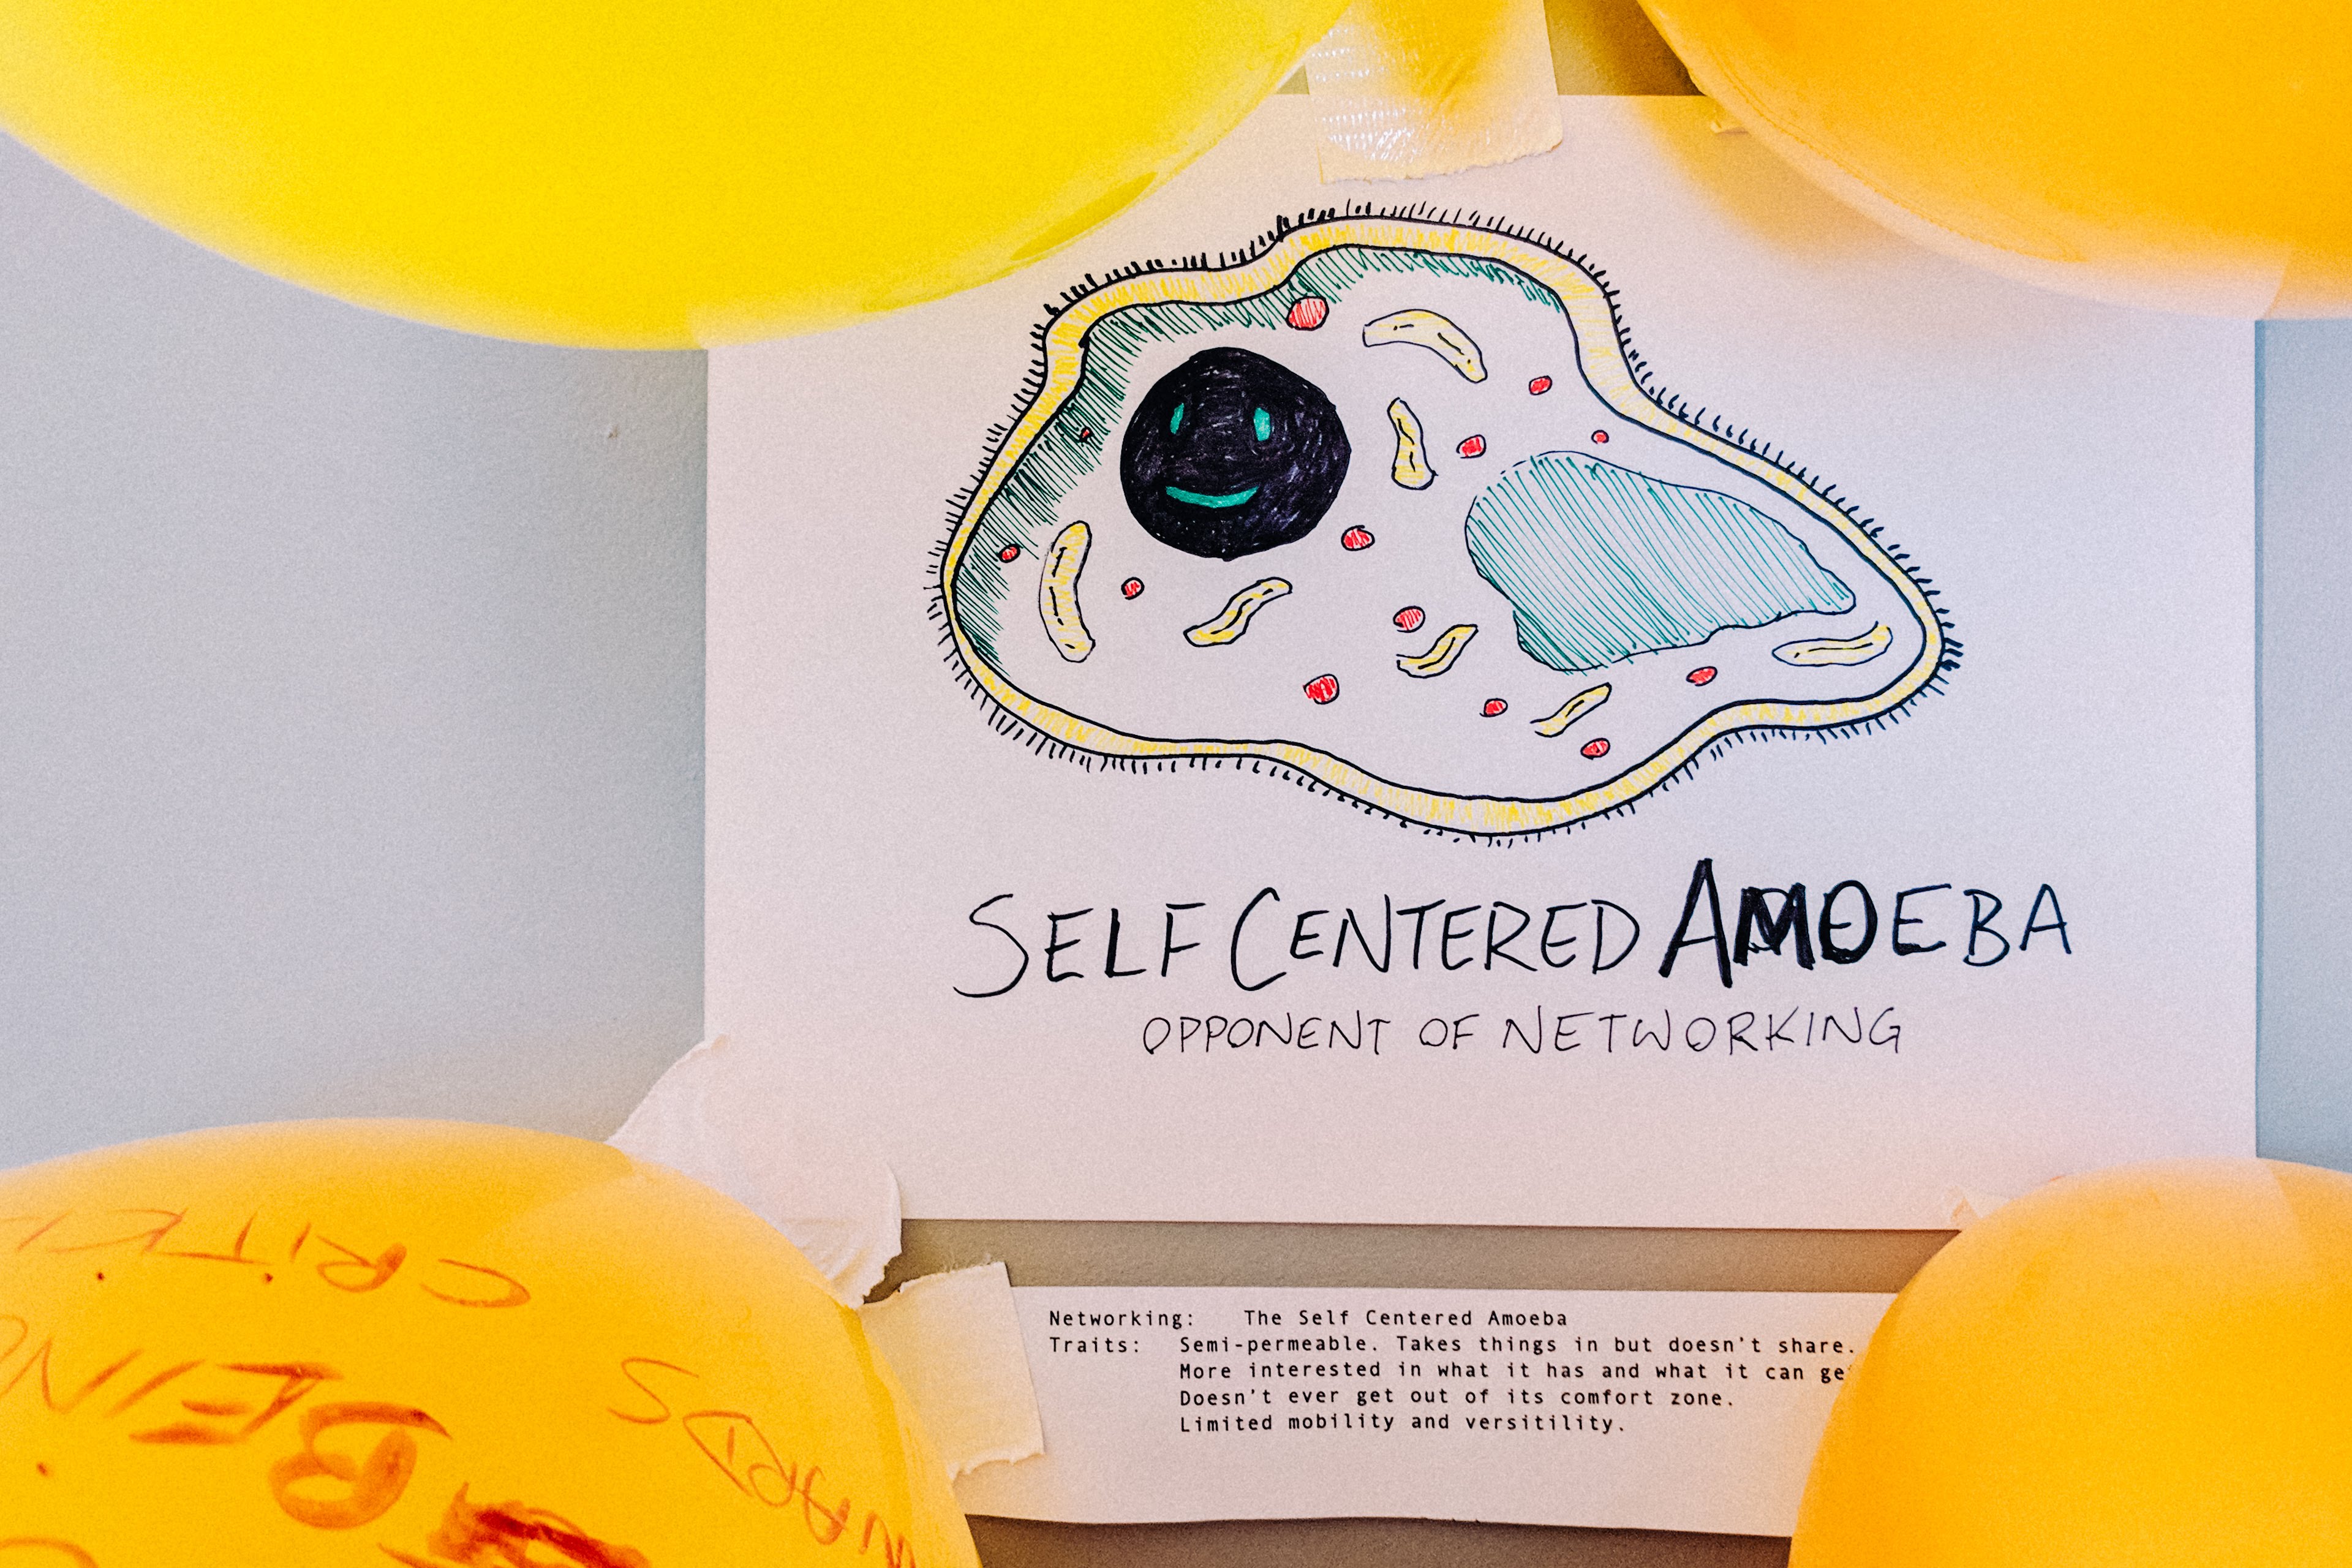 SELF CENTERED AMOEBA
OPPONENT OF NETWORKING
Networking: The Self Centered Amoeba
Traits: Semi-permeable. Takes things in but doesn't share.
More interested in what it has and what it can
Doesn't ever get out of its comfort zone.
Limited mobility and versitility.
BEING